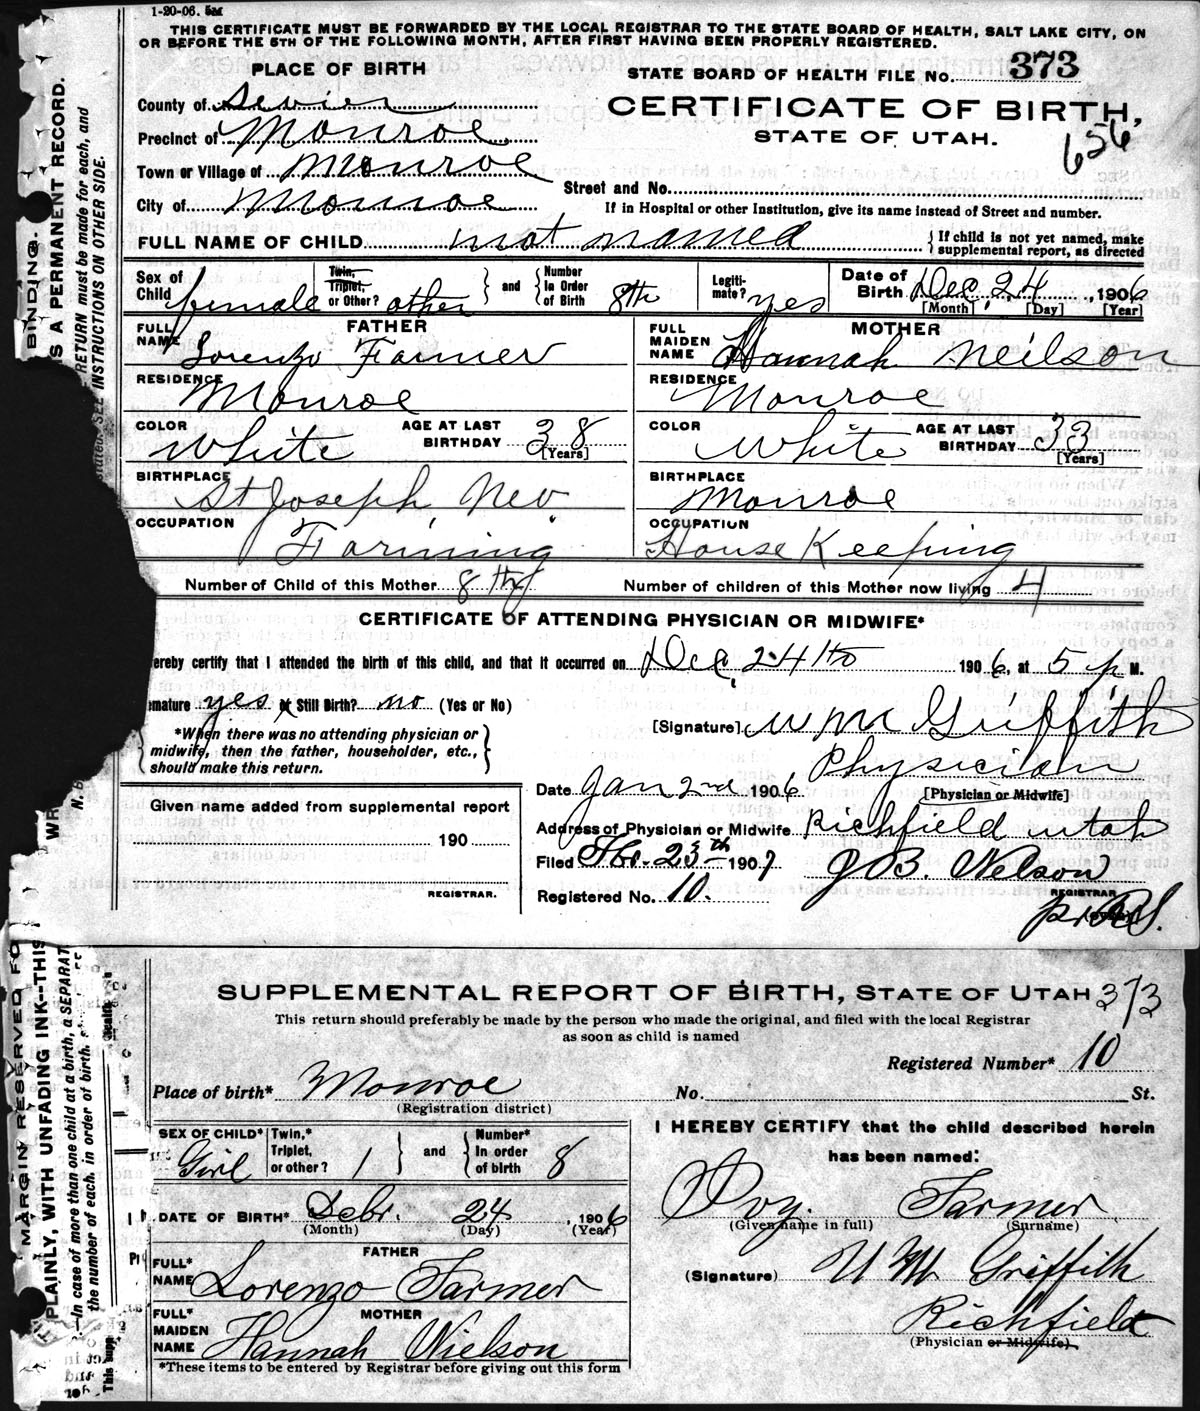 1-20-06. 5M
THIS CERTIFICATE MUST BE FORWARDED BY THE LOCAL REGISTRAR TO THE STATE BOARD OF HEALTH, SALT LAKE CITY, ON
OR BEFORE THE 5TH OF THE FOLLOWING MONTH, AFTER FIRST HAVING BEEN PROPERLY REGISTERED.
PLACE OF BIRTH
STATE BOARD OF HEALTH FILE No. 373
County of Sevier
CERTIFICATE OF BIRTH,
Precinct of Monroe
STATE OF UTAH.
656
Town or Village of Monroe
Street and No.
City of Monroe
If in Hospital or other Institution, give its name instead of Street and number.
FULL NAME OF CHILD not named
If child is not yet named, make supplemental report, as directed
Sex of Child female Twin, Triplet, or Other? other and Number In Order of Birth 8th Legitimate? yes Date of Birth Dec, 24, 1906
[Month] [Day] [Year]
FATHER
MOTHER
FULL NAME Lorenzo Farmer
FULL MAIDEN NAME Hannah Neilson
RESIDENCE Monroe
RESIDENCE Monroe
COLOR White AGE AT LAST BIRTHDAY 38 [Years]
COLOR White AGE AT LAST BIRTHDAY 33 [Years]
BIRTHPLACE St Joseph, Nev.
BIRTHPLACE Monroe
OCCUPATION Farming
OCCUPATION House Keeping
Number of Child of this Mother 8th Number of children of this Mother now living 4
CERTIFICATE OF ATTENDING PHYSICIAN OR MIDWIFE*
ereby certify that I attended the birth of this child, and that it occurred on Dec, 24th 1906, at 5 p M.
mature yes or Still Birth? no (Yes or No)
[Signature] W M Griffith
*When there was no attending physician or
midwife, then the father, householder, etc.,
should make this return.
Physician
[Physician or Midwife]
Date Jan 2nd 1906
Given name added from supplemental report
Address of Physician or Midwife Richfield Utah
190
Filed 23th 1907 J B. Nelson
REGISTRAR
REGISTRAR.
Registered No. 10.
BINDING.
IS A PERMANENT RECORD.
RETURN must be made for each, and
INSTRUCTIONS ON OTHER SIDE.
MARGIN RESERVED FO
PLAINLY, WITH UNFADING INK--THIS
In case of more than one child at a birth, a SEPARAT
the number of each, in order of birth.
SUPPLEMENTAL REPORT OF BIRTH, STATE OF UTAH 373
This return should preferably be made by the person who made the original, and filed with the local Registrar
as soon as child is named
Registered Number* 10
Place of birth* Monroe No. St.
(Registration district)
SEX OF CHILD* Girl Twin,* Triplet, or other? 1 and Number* In order of birth 8
I HEREBY CERTIFY that the child described herein
has been named:
DATE OF BIRTH* Debr. 24, 1906
(Month) (Day) (Year)
Ivy. Farmer
(Given name in full) (Surname)
FATHER
FULL* NAME Lorenzo Farmer
(Signature) W M Griffith
MOTHER
Richfield
FULL* MAIDEN NAME Hannah Nielson
(Physician or Midwife)
*These items to be entered by Registrar before giving out this form